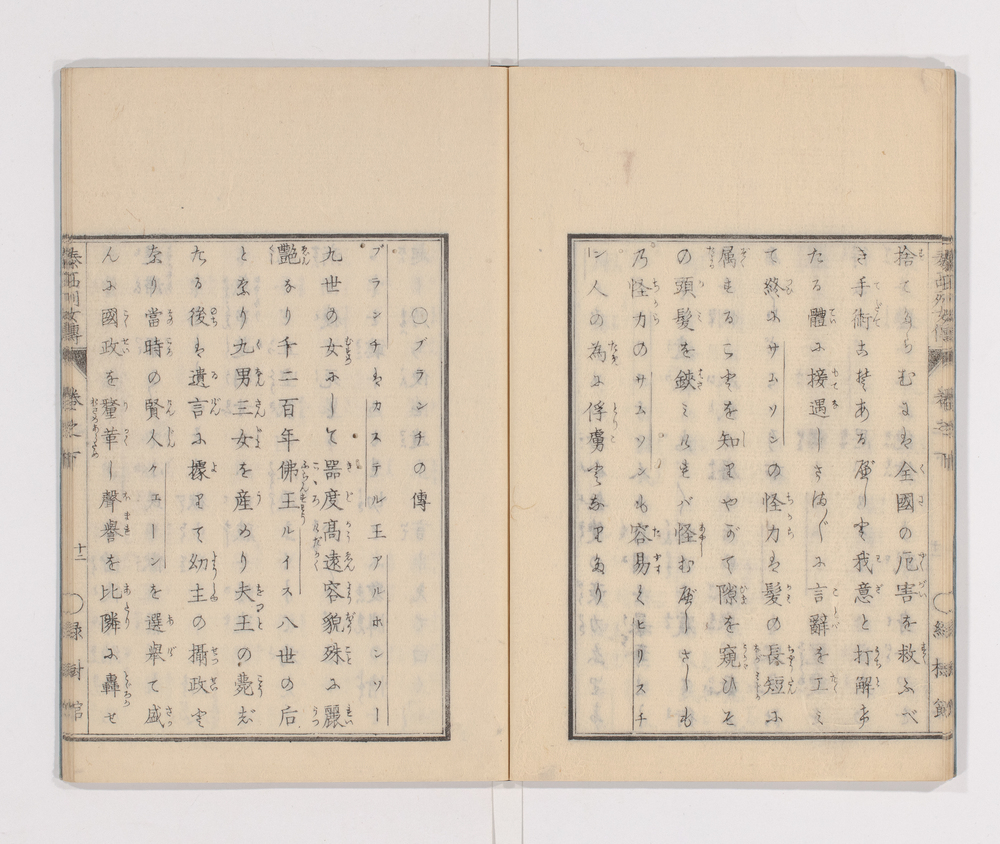 捨てよらむには全國の厄害を救ふべ
き手術こそあるべけれと我意と打解け
たる體に接遇しさま〲に言辭を工み
て終にサムソンの怪力は髪の長短に
属することを知りやがて隙を窺ひそ
の頭髪を鋏みければ怪むべしさしも
乃怪力のサムソンも容易くヒリスチ
ン人の為に俘虜となりたり
〇ブランチの傳
ブランチはカステル王アルホンソー
九世の女にして器度髙遠容貌殊に麗
艷なり千二百年佛王ルイス八世の后
となり九男三女を産めり夫王の薨ぜ
たる後は遺言に據りて幼主の攝政と
なり當時の賢人
を選舉て盛
んに國政を釐革し聲譽を比隣に轟せ
泰西列女傳
卷之下
十二